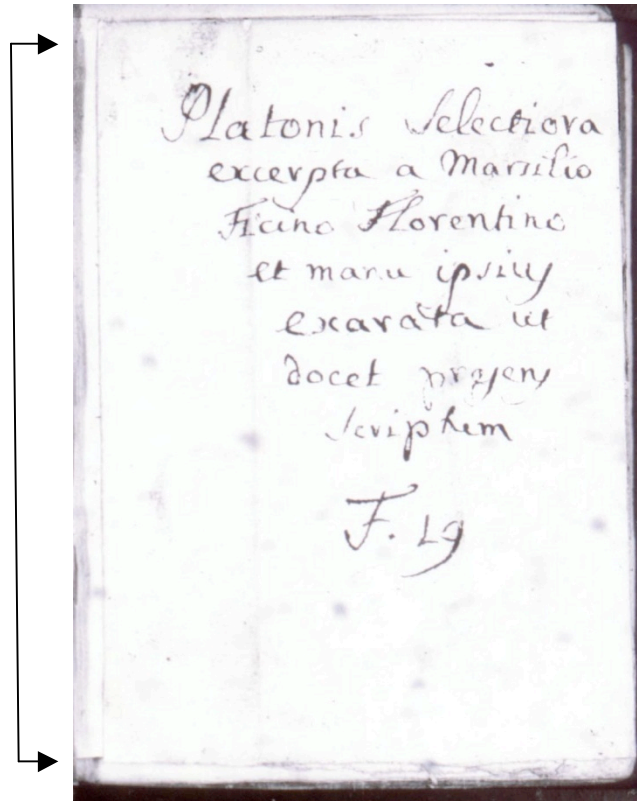 Platonis Selectiora
excerpta a Marsilio
Ficino Florentino
et manu ipsius
exarata ut
docet præsens
scriptum
F. 19